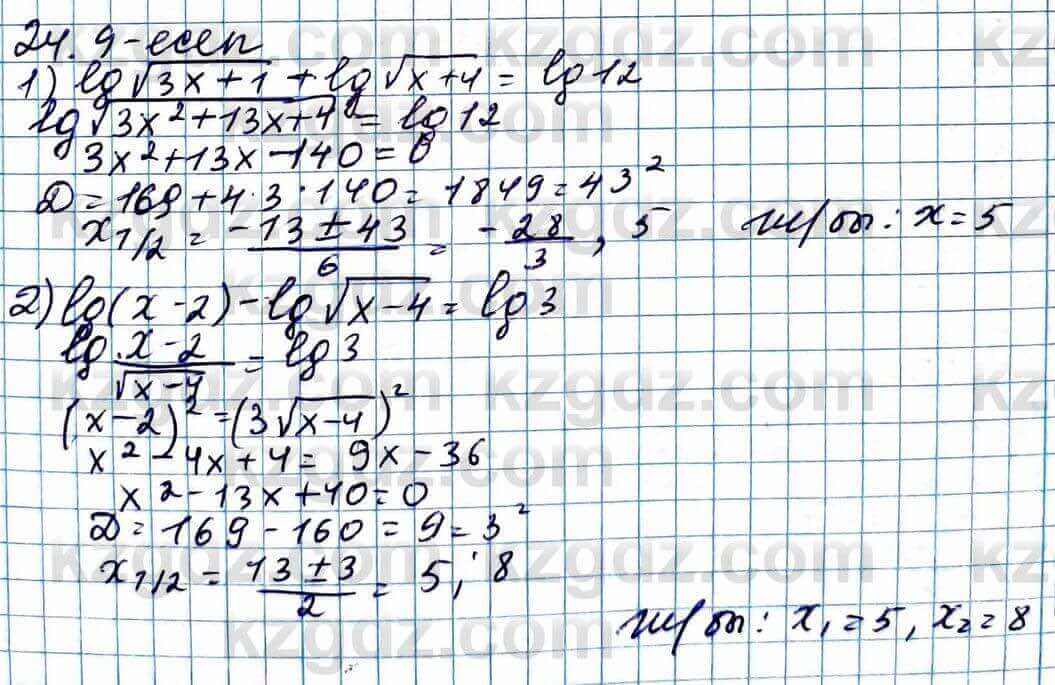 24.9-есеп
1) lg√(3x+1) + lg√(x+4) = lg12
lg√(3x²+13x+4) = lg12
3x²+13x-140=0
D=169+4·3·140=1849=43²
x1/2 = (-13±43)/6 = -28/3, 5 ж/бы: x=5
2) lg(x-2)-lg√(x-4) = lg3
lg (x-2)/√(x-4) = lg3
(x-2)²=(3√(x-4))²
x²-4x+4=9x-36
x²-13x+40=0
D=169-160=9=3²
x1/2 = (13±3)/2 = 5; 8
ж/бы: x₁=5, x₂=8
kzgdz.com